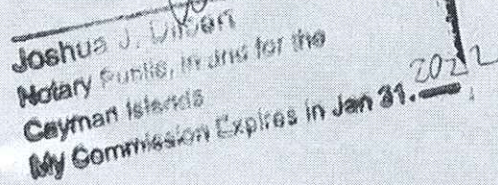 Joshua J.
Notary Public, in and for the
Cayman Islands
My Commission Expires in Jan 31. 2022